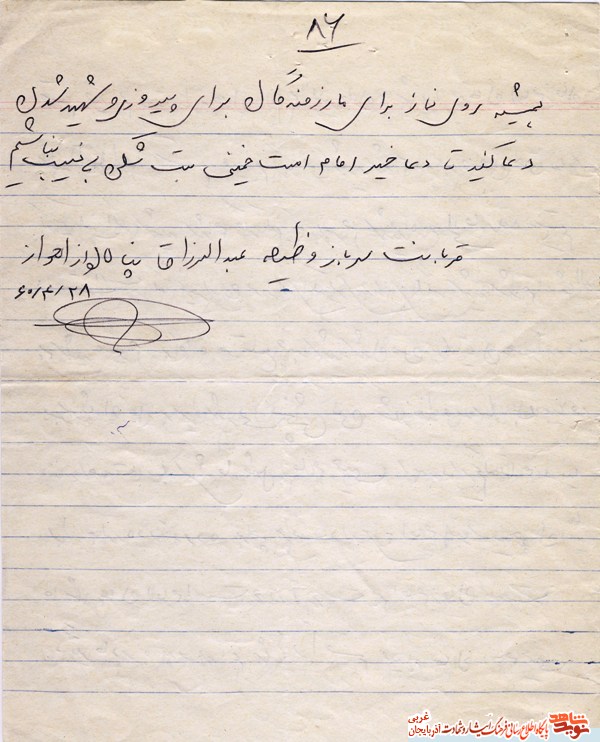 ۸۶
همیشه روی نماز برای ما رزمندگان برای پیروزی و شهید شدن
دعا کنید تا دعا خیر امام امت خمینی بت شکن بی نصیب نباشیم
قربانت سرباز وظیفه عبدالرزاق از اهواز
۶۰/۴/۲۸
نوید شاهد
پایگاه اطلاع رسانی فرهنگ ایثار و شهادت آذربایجان غربی